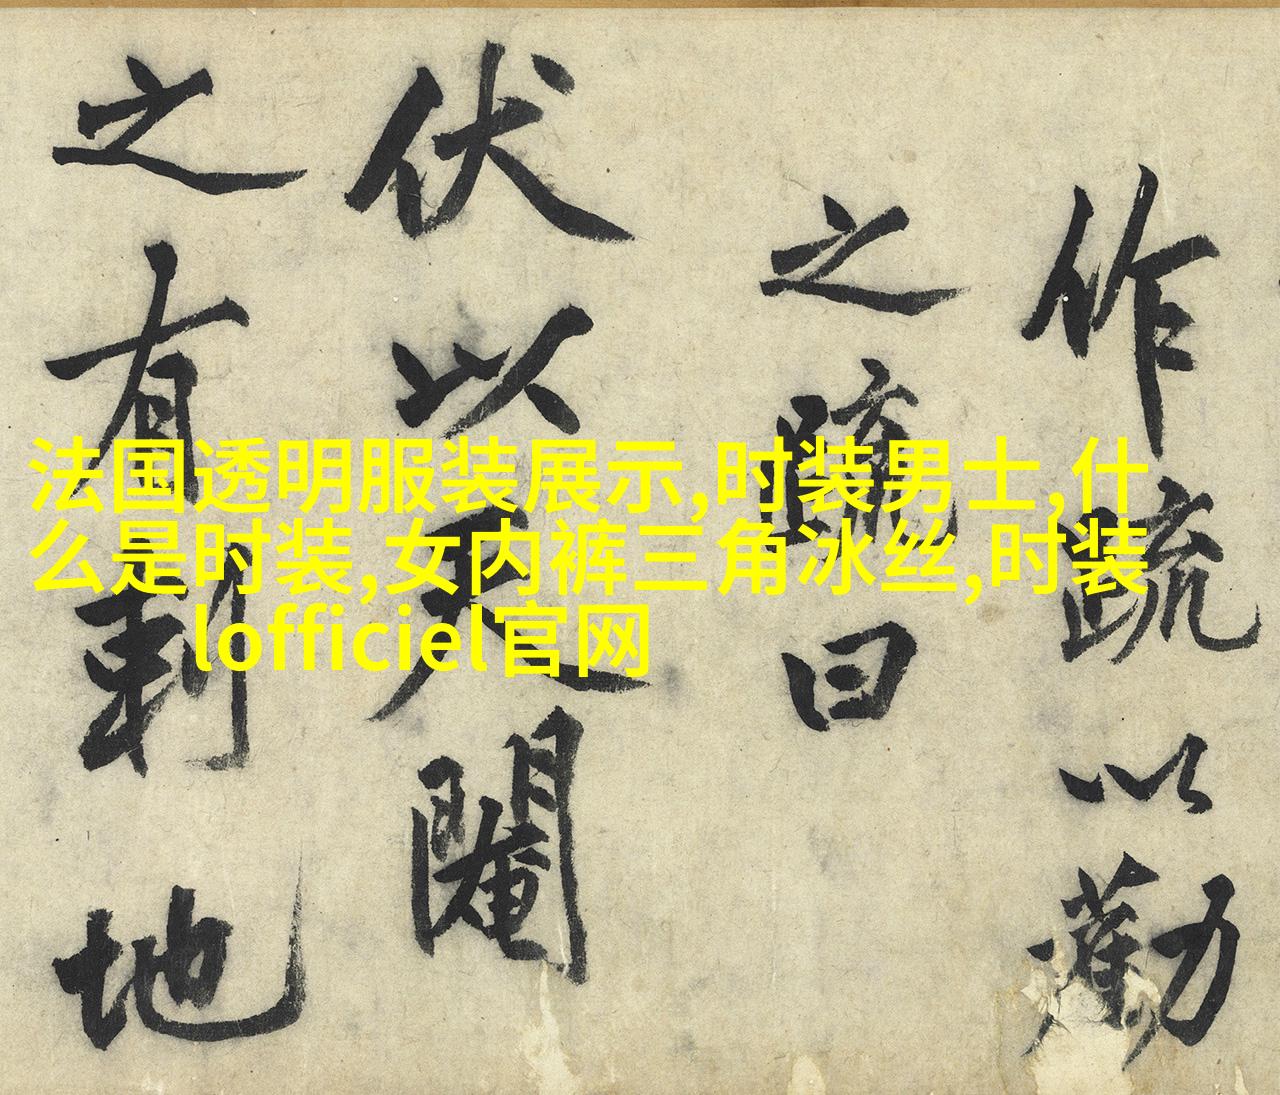 作疏以勸
之疏曰
伏以天人闡
之有刺地
法国透明服装展示,时装男士,什
么是时装,女内裤三角冰丝,时装
lofficiel官网